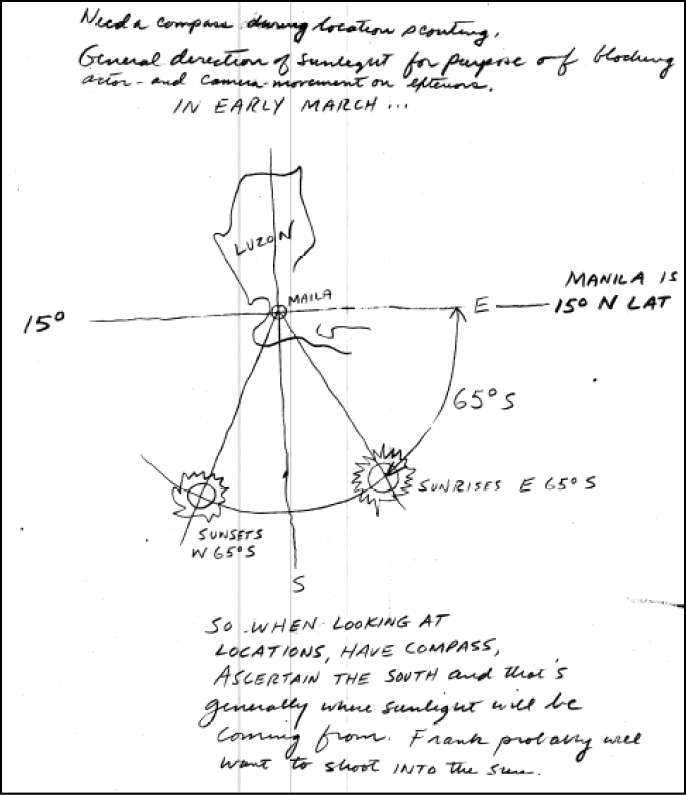 Need a compass during location scouting.
General direction of sunlight for purpose of blocking
actor- and camera-movement on exteriors.
IN EARLY MARCH...
LUZON
MAILA
15°
E
MANILA IS
15° N LAT
65° S
SUNRISES E 65° S
SUNSETS
W 65° S
S
SO WHEN LOOKING AT
LOCATIONS, HAVE COMPASS,
ASCERTAIN THE SOUTH and that's
generally where sunlight will be
coming from. Frank probably will
want to shoot INTO the sun.